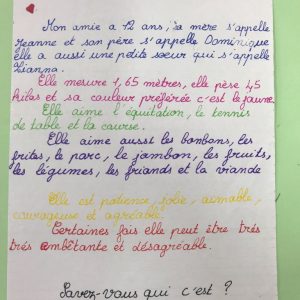 Mon amie a 12 ans, sa mère s'appelle
Jeanne et son père s'appelle Dominique
elle a aussi une petite soeur qui s'appelle
Lianna.
Elle mesure 1,65 mètres, elle pèse 45
kilos et sa couleur préférée c'est le jaune.
Elle aime l'équitation, le tennis
de table et la course.
Elle aime aussi les bonbons, les
frites, le porc, le jambon, les fruits,
les légumes, les friands et la viande
Elle est patiente, jolie, aimable,
courageuse et agréable.
Certaines fois elle peut être très
très embêtante et désagréable.
Savez-vous qui c'est ?